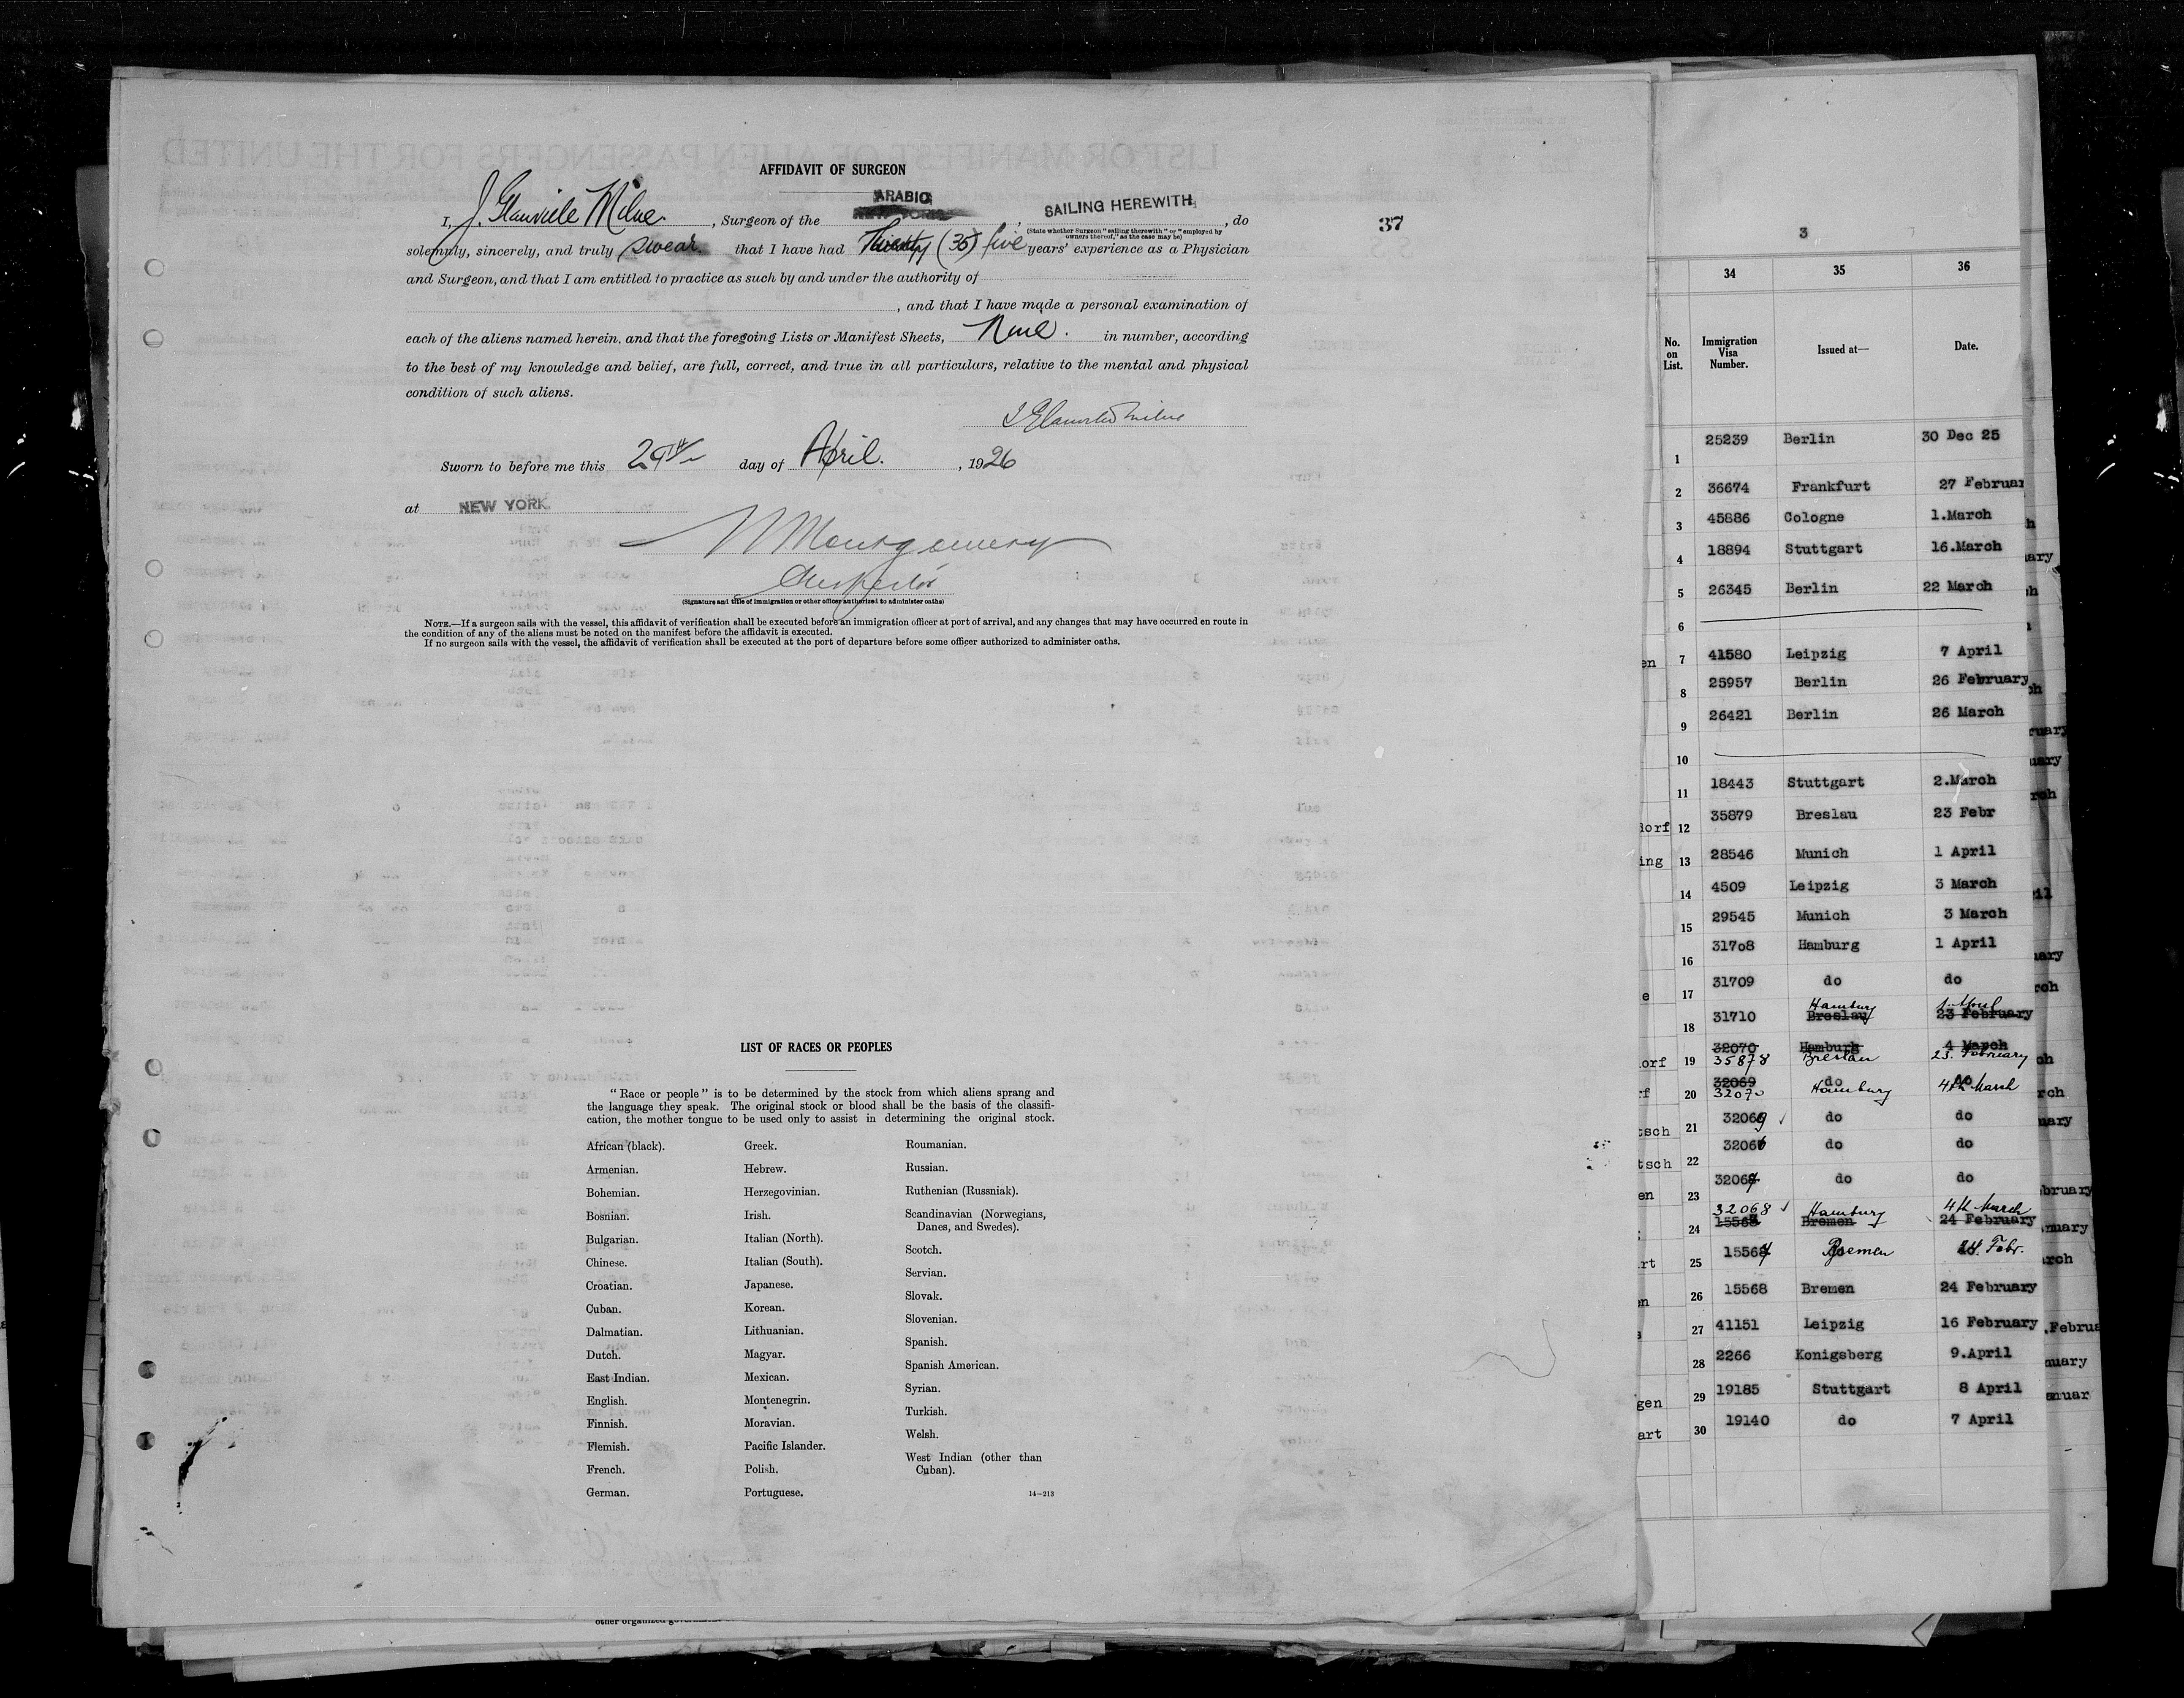 AFFIDAVIT OF SURGEON
I, J. Glanville Milne. , Surgeon of the ARABIC , SAILING HEREWITH , do
(State whether Surgeon "sailing therewith" or "employed by
owners thereof," as the case may be)
37
solemnly, sincerely, and truly swear that I have had Thirty (35) five years' experience as a Physician
and Surgeon, and that I am entitled to practice as such by and under the authority of
, and that I have made a personal examination of
each of the aliens named herein, and that the foregoing Lists or Manifest Sheets, Nine . in number, according
to the best of my knowledge and belief, are full, correct, and true in all particulars, relative to the mental and physical
condition of such aliens.
J Glanville Milne
Sworn to before me this 29th day of April. , 1926
at NEW YORK
Montgomery
Inspector
(Signature and title of immigration or other officer authorized to administer oaths)
NOTE.—If a surgeon sails with the vessel, this affidavit of verification shall be executed before an immigration officer at port of arrival, and any changes that may have occurred en route in
the condition of any of the aliens must be noted on the manifest before the affidavit is executed.
If no surgeon sails with the vessel, the affidavit of verification shall be executed at the port of departure before some officer authorized to administer oaths.
LIST OF RACES OR PEOPLES
"Race or people" is to be determined by the stock from which aliens sprang and
the language they speak. The original stock or blood shall be the basis of the classifi-
cation, the mother tongue to be used only to assist in determining the original stock.
African (black).
Armenian.
Bohemian.
Bosnian.
Bulgarian.
Chinese.
Croatian.
Cuban.
Dalmatian.
Dutch.
East Indian.
English.
Finnish.
Flemish.
French.
German.
Greek.
Hebrew.
Herzegovinian.
Irish.
Italian (North).
Italian (South).
Japanese.
Korean.
Lithuanian.
Magyar.
Mexican.
Montenegrin.
Moravian.
Pacific Islander.
Polish.
Portuguese.
Roumanian.
Russian.
Ruthenian (Russniak).
Scandinavian (Norwegians,
Danes, and Swedes).
Scotch.
Servian.
Slovak.
Slovenian.
Spanish.
Spanish American.
Syrian.
Turkish.
Welsh.
West Indian (other than
Cuban).
14—213
3
34 35 36
No. on List. Immigration Visa Number. Issued at— Date.
1 25239 Berlin 30 Dec 25
2 36674 Frankfurt 27 Februar
3 45886 Cologne 1.March
4 18894 Stuttgart 16.March
5 26345 Berlin 22 March
6
7 41580 Leipzig 7 April
8 25957 Berlin 26 February
9 26421 Berlin 26 March
10
11 18443 Stuttgart 2.March
12 35879 Breslau 23 Febr
13 28546 Munich 1 April
14 4509 Leipzig 3 March
15 29545 Munich 3 March
16 31708 Hamburg 1 April
17 31709 do do
Hamburg 1. April
18 31710 Breslau 23 February
32070 Hamburg 4 March
19 35878 Breslau 23. February
32069 do do
20 32070 Hamburg 4th March
21 32069 do do
22 32066 do do
23 32067 do do
32068 Hamburg 4th March
24 15568 Bremen 24 February
25 15567 Bremen 24. Febr.
26 15568 Bremen 24 February
27 41151 Leipzig 16 February
28 2266 Konigsberg 9.April
29 19185 Stuttgart 8 April
30 19140 do 7 April